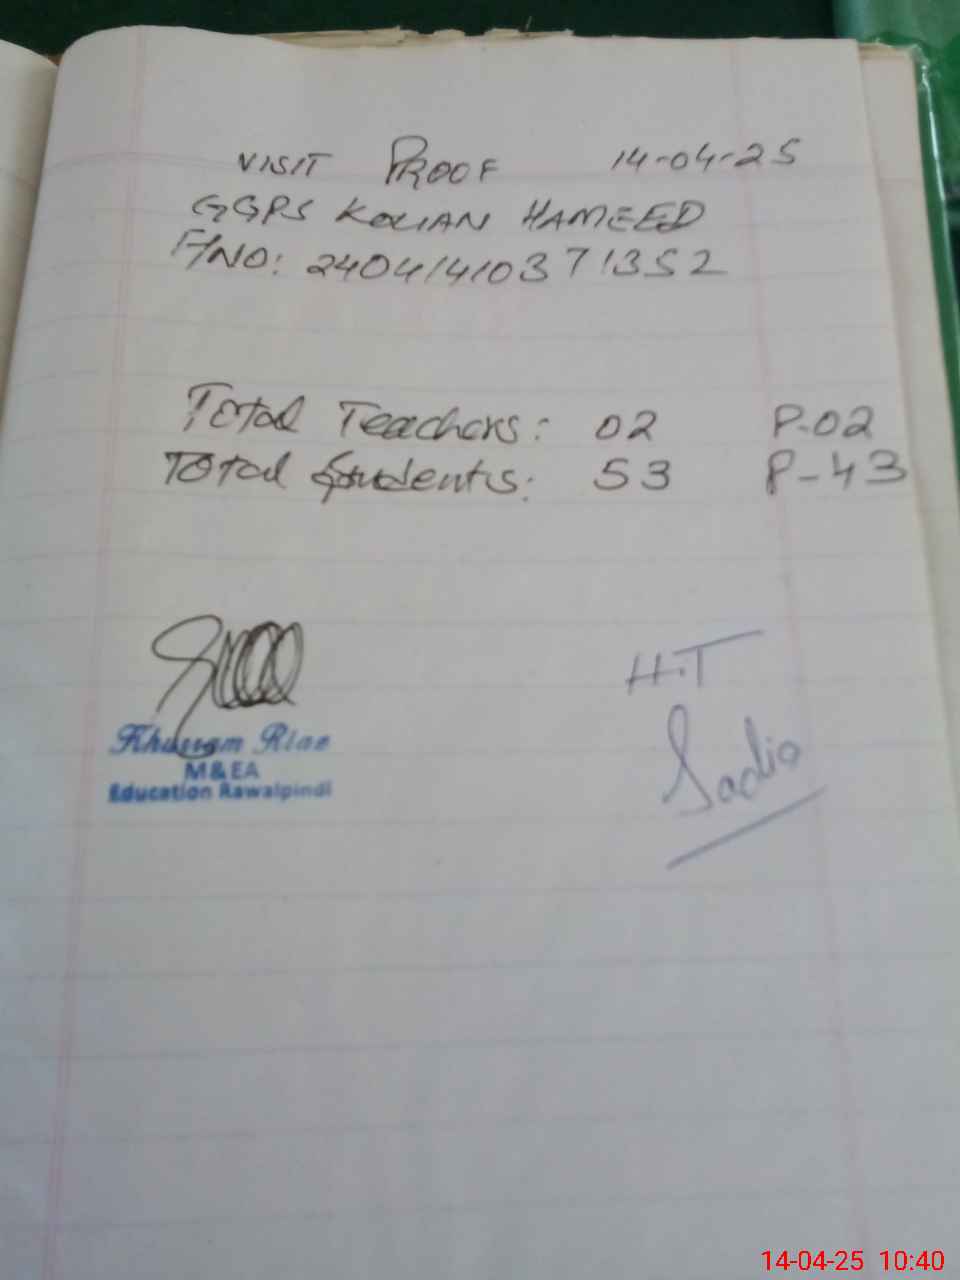 VISIT PROOF 14-04-25
GGPS KOLIAN HAMEED
F/NO: 2404141037 1352
Total Teachers: 02 P-02
Total Students: 53 P-43
H.T
Sadia
Khurram Riaz
M&EA
Education Rawalpindi
14-04-25 10:40